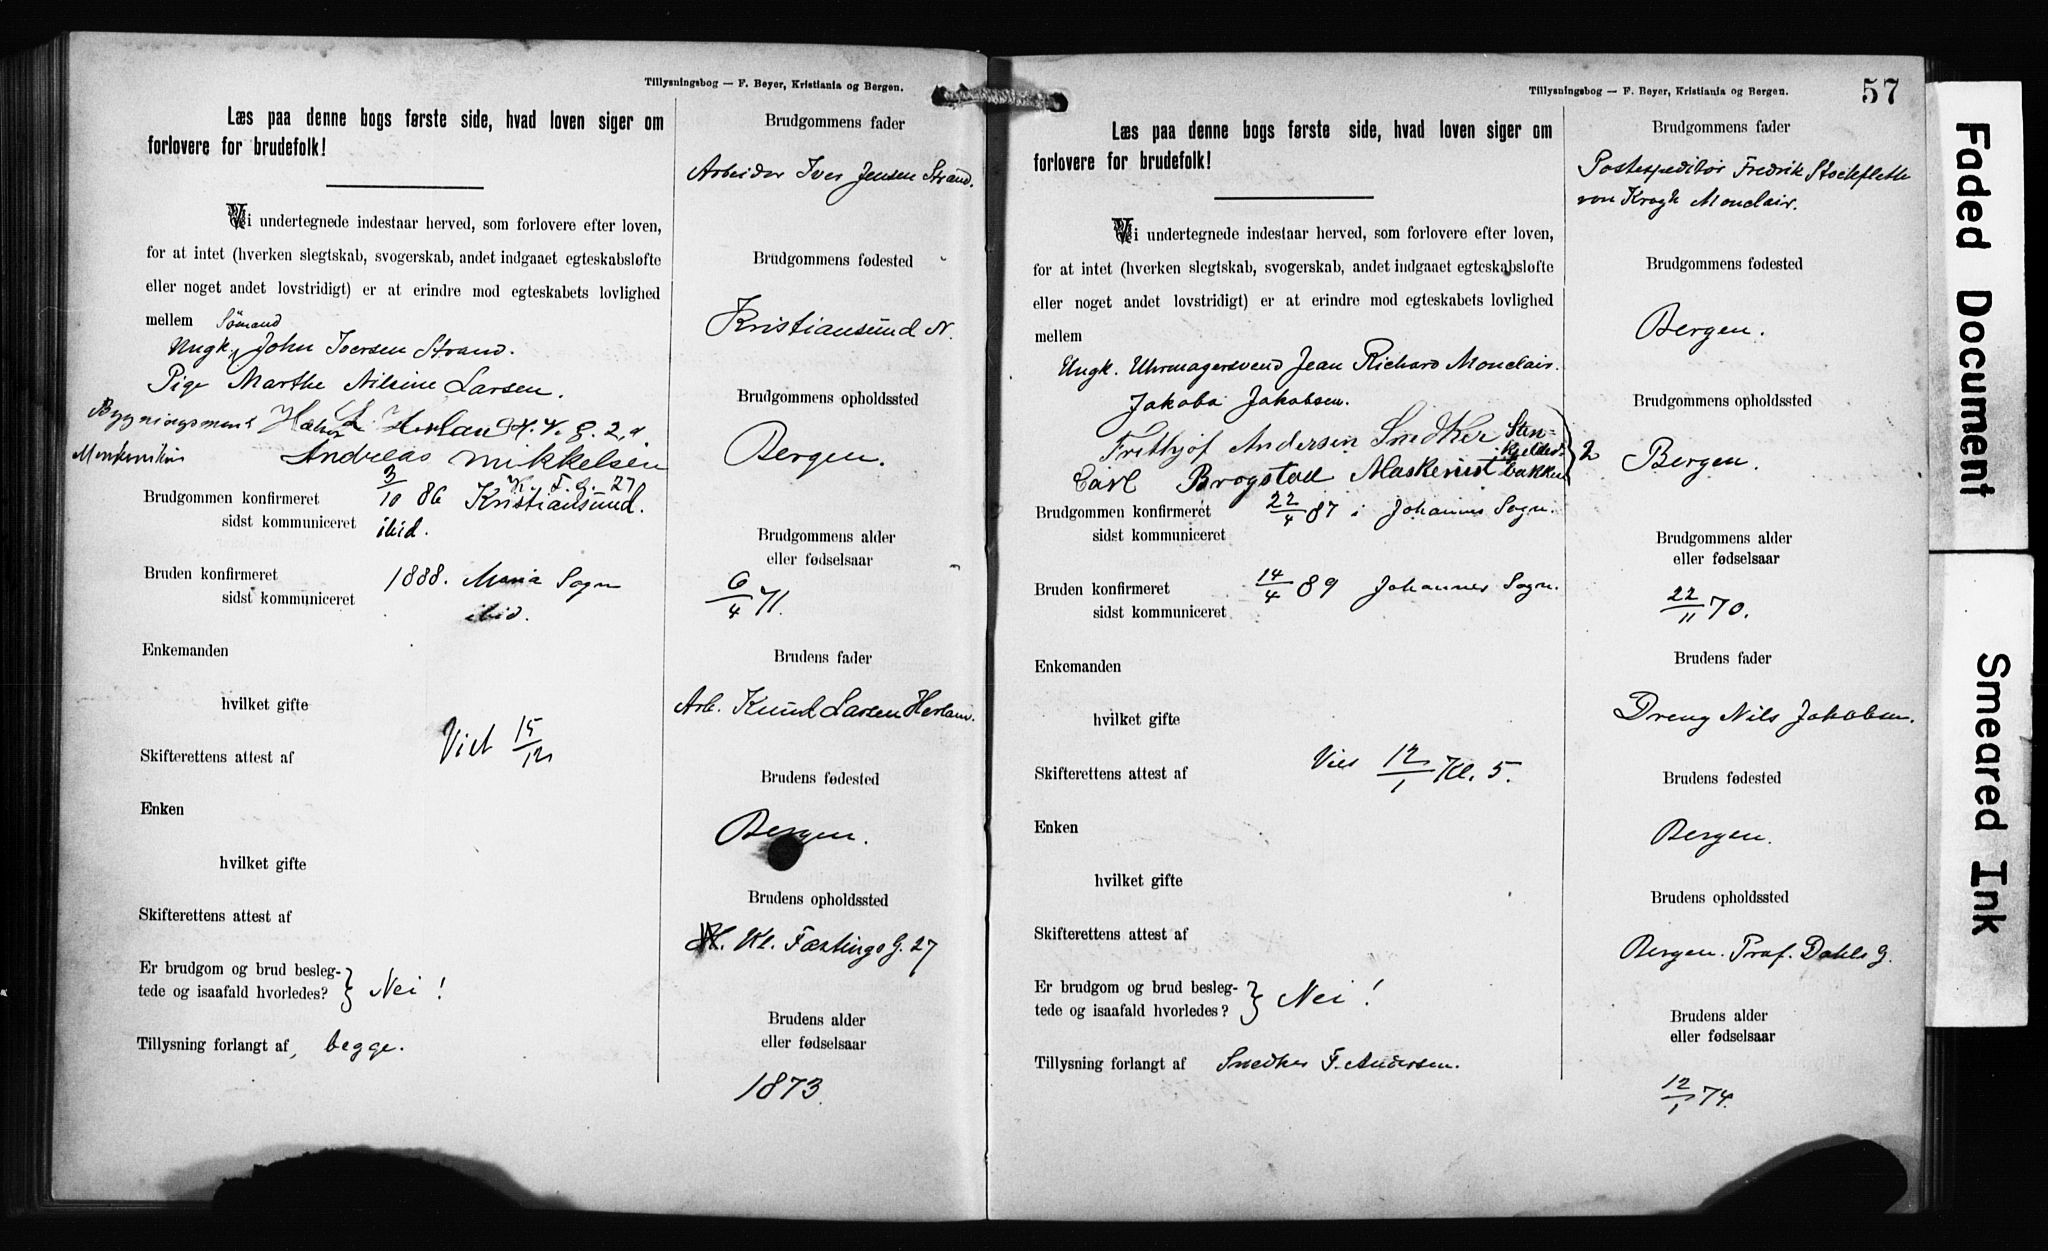 Tillysningsbog — F. Beyer, Kristiania og Bergen.
Læs paa denne bogs første side, hvad loven siger om
forlovere for brudefolk!
Vi undertegnede indestaar herved, som forlovere efter loven,
for at intet (hverken slegtskab, svogerskab, andet indgaaet egteskabsløfte
eller noget andet lovstridigt) er at erindre mod egteskabets lovlighed
mellem Sømand
Ungk. John Iversen Strand.
Pige Marthe Nilsine Larsen.
Herland H. V. G. 2,
Andreas Mikkelsen
K. F. G. 27
Brudgommen konfirmeret 3/10 86 Kristiansund.
sidst kommuniceret ibid.
Bruden konfirmeret 1888. Maria Sogn
sidst kommuniceret ibid.
Enkemanden
hvilket gifte
Viet 15/12
Skifterettens attest af
Enken
hvilket gifte
Skifterettens attest af
Er brudgom og brud besleg-
tede og isaafald hvorledes? } Nei!
Tillysning forlangt af, begge.
Brudgommens fader
Arbeider Iver Jensen Strand.
Brudgommens fødested
Kristiansund N.
Brudgommens opholdssted
Bergen.
Brudgommens alder
eller fødselsaar
6/4 71.
Brudens fader
Arb. Knud Larsen Herland.
Brudens fødested
Bergen.
Brudens opholdssted
Kl. Fæstings G. 27
Brudens alder
eller fødselsaar
1873.
Tillysningsbog — F. Beyer, Kristiania og Bergen.
57
Læs paa denne bogs første side, hvad loven siger om
forlovere for brudefolk!
Vi undertegnede indestaar herved, som forlovere efter loven,
for at intet (hverken slegtskab, svogerskab, andet indgaaet egteskabsløfte
eller noget andet lovstridigt) er at erindre mod egteskabets lovlighed
mellem
Ungk. Uhrmagersvend Jean Richard Monclair.
Jakoba Jakobsen.
Frithjof Andersen Snedker Sten-
kjelder-
Carl Brogstad Maskenist bakken } 2
Brudgommen konfirmeret 22/4 87 i Johannes Sogn.
sidst kommuniceret
Bruden konfirmeret 14/4 89 Johannes Sogn.
sidst kommuniceret
Enkemanden
hvilket gifte
Vies 12/1 Kl. 5.
Skifterettens attest af
Enken
hvilket gifte
Skifterettens attest af
Er brudgom og brud besleg-
tede og isaafald hvorledes? } Nei!
Tillysning forlangt af Snedker F. Andersen.
Brudgommens fader
Postexpeditør Fredrik Stockfleth
von Krogh Monclair.
Brudgommens fødested
Bergen.
Brudgommens opholdssted
Bergen.
Brudgommens alder
eller fødselsaar
22/11 70.
Brudens fader
Dreng Nils Jakobsen.
Brudens fødested
Bergen.
Brudens opholdssted
Bergen. Prof. Dahls G.
Brudens alder
eller fødselsaar
12/1 74.
Faded Document
Smeared Ink